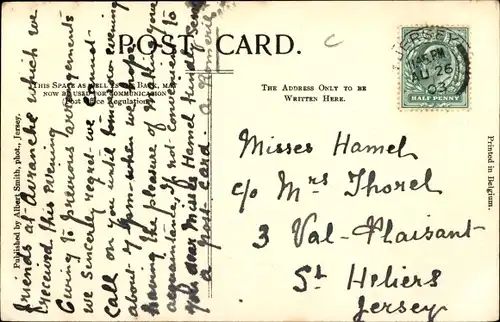 POST CARD.
THIS SPACE AS WELL AS THE BACK, MAY
NOW BE USED FOR COMMUNICATION
(Post Office Regulation).
THE ADDRESS ONLY TO BE
WRITTEN HERE.
JERSEY
11.45 PM
AU 26
HALF PENNY
Misses Hamel
c/o Mrs Thorel
3 Val-Plaisant
St Heliers
Jersey
Printed in Belgium.
Published by Albert Smith, phot., Jersey.
friends at Avranche which we
received this evening
Owing to previous arrangements
we sincerely regret we cannot
call on you until tomorrow evening
about 7 pm when we hope
having the pleasure of making your
acquaintance. If not convenient to
you dear Misses Hamel kindly send
a post card.